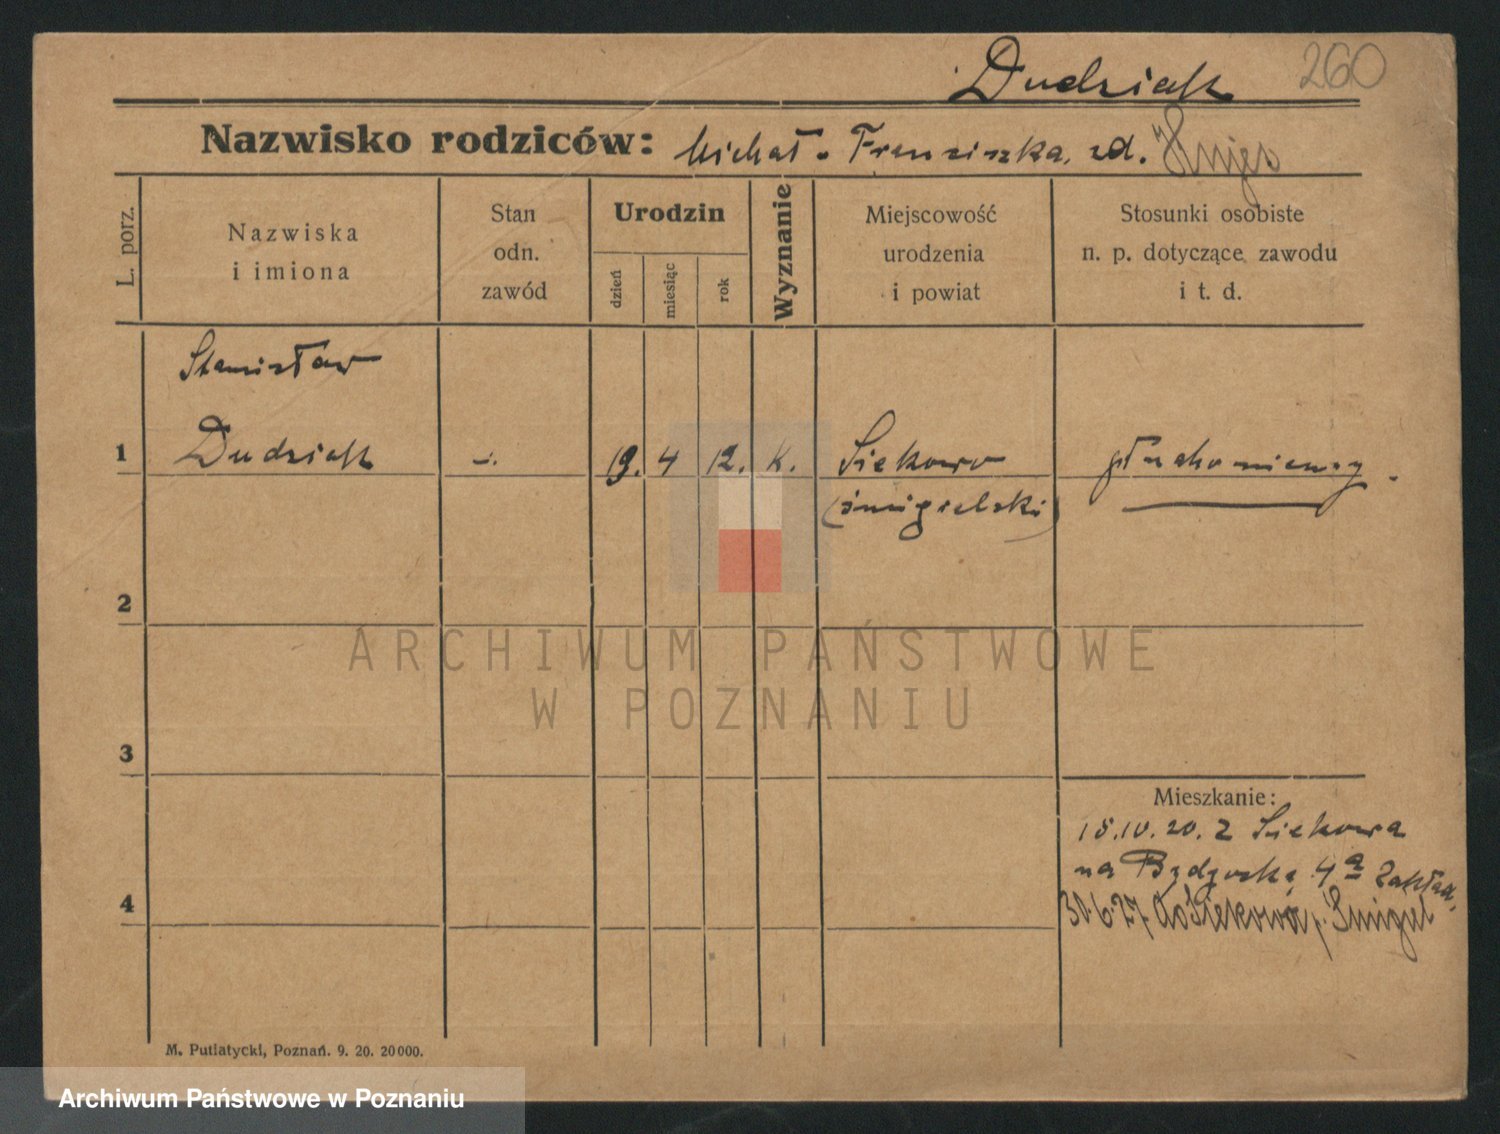 Dudziak 260
Nazwisko rodziców: Michał - Franciszka, zd.
L. porz.
Nazwiska
i imiona
Stan
odn.
zawód
Urodzin
dzień
miesiąc
rok
Wyznanie
Miejscowość
urodzenia
i powiat
Stosunki osobiste
n. p. dotyczące zawodu
i t. d.
Stanisław
1 Dudziak -. 19. 4 12. K. Siekowo głuchoniemy.
(śmigielski)
2
3
4
Mieszkanie:
15.IV.20. z Siekowa
na Bydgoską 4a Zakład,
30.6.27. do Siekowa p. Śmigiel
M. Putiatycki, Poznań. 9. 20. 20000.
ARCHIWUM PAŃSTWOWE
W POZNANIU
Archiwum Państwowe w Poznaniu